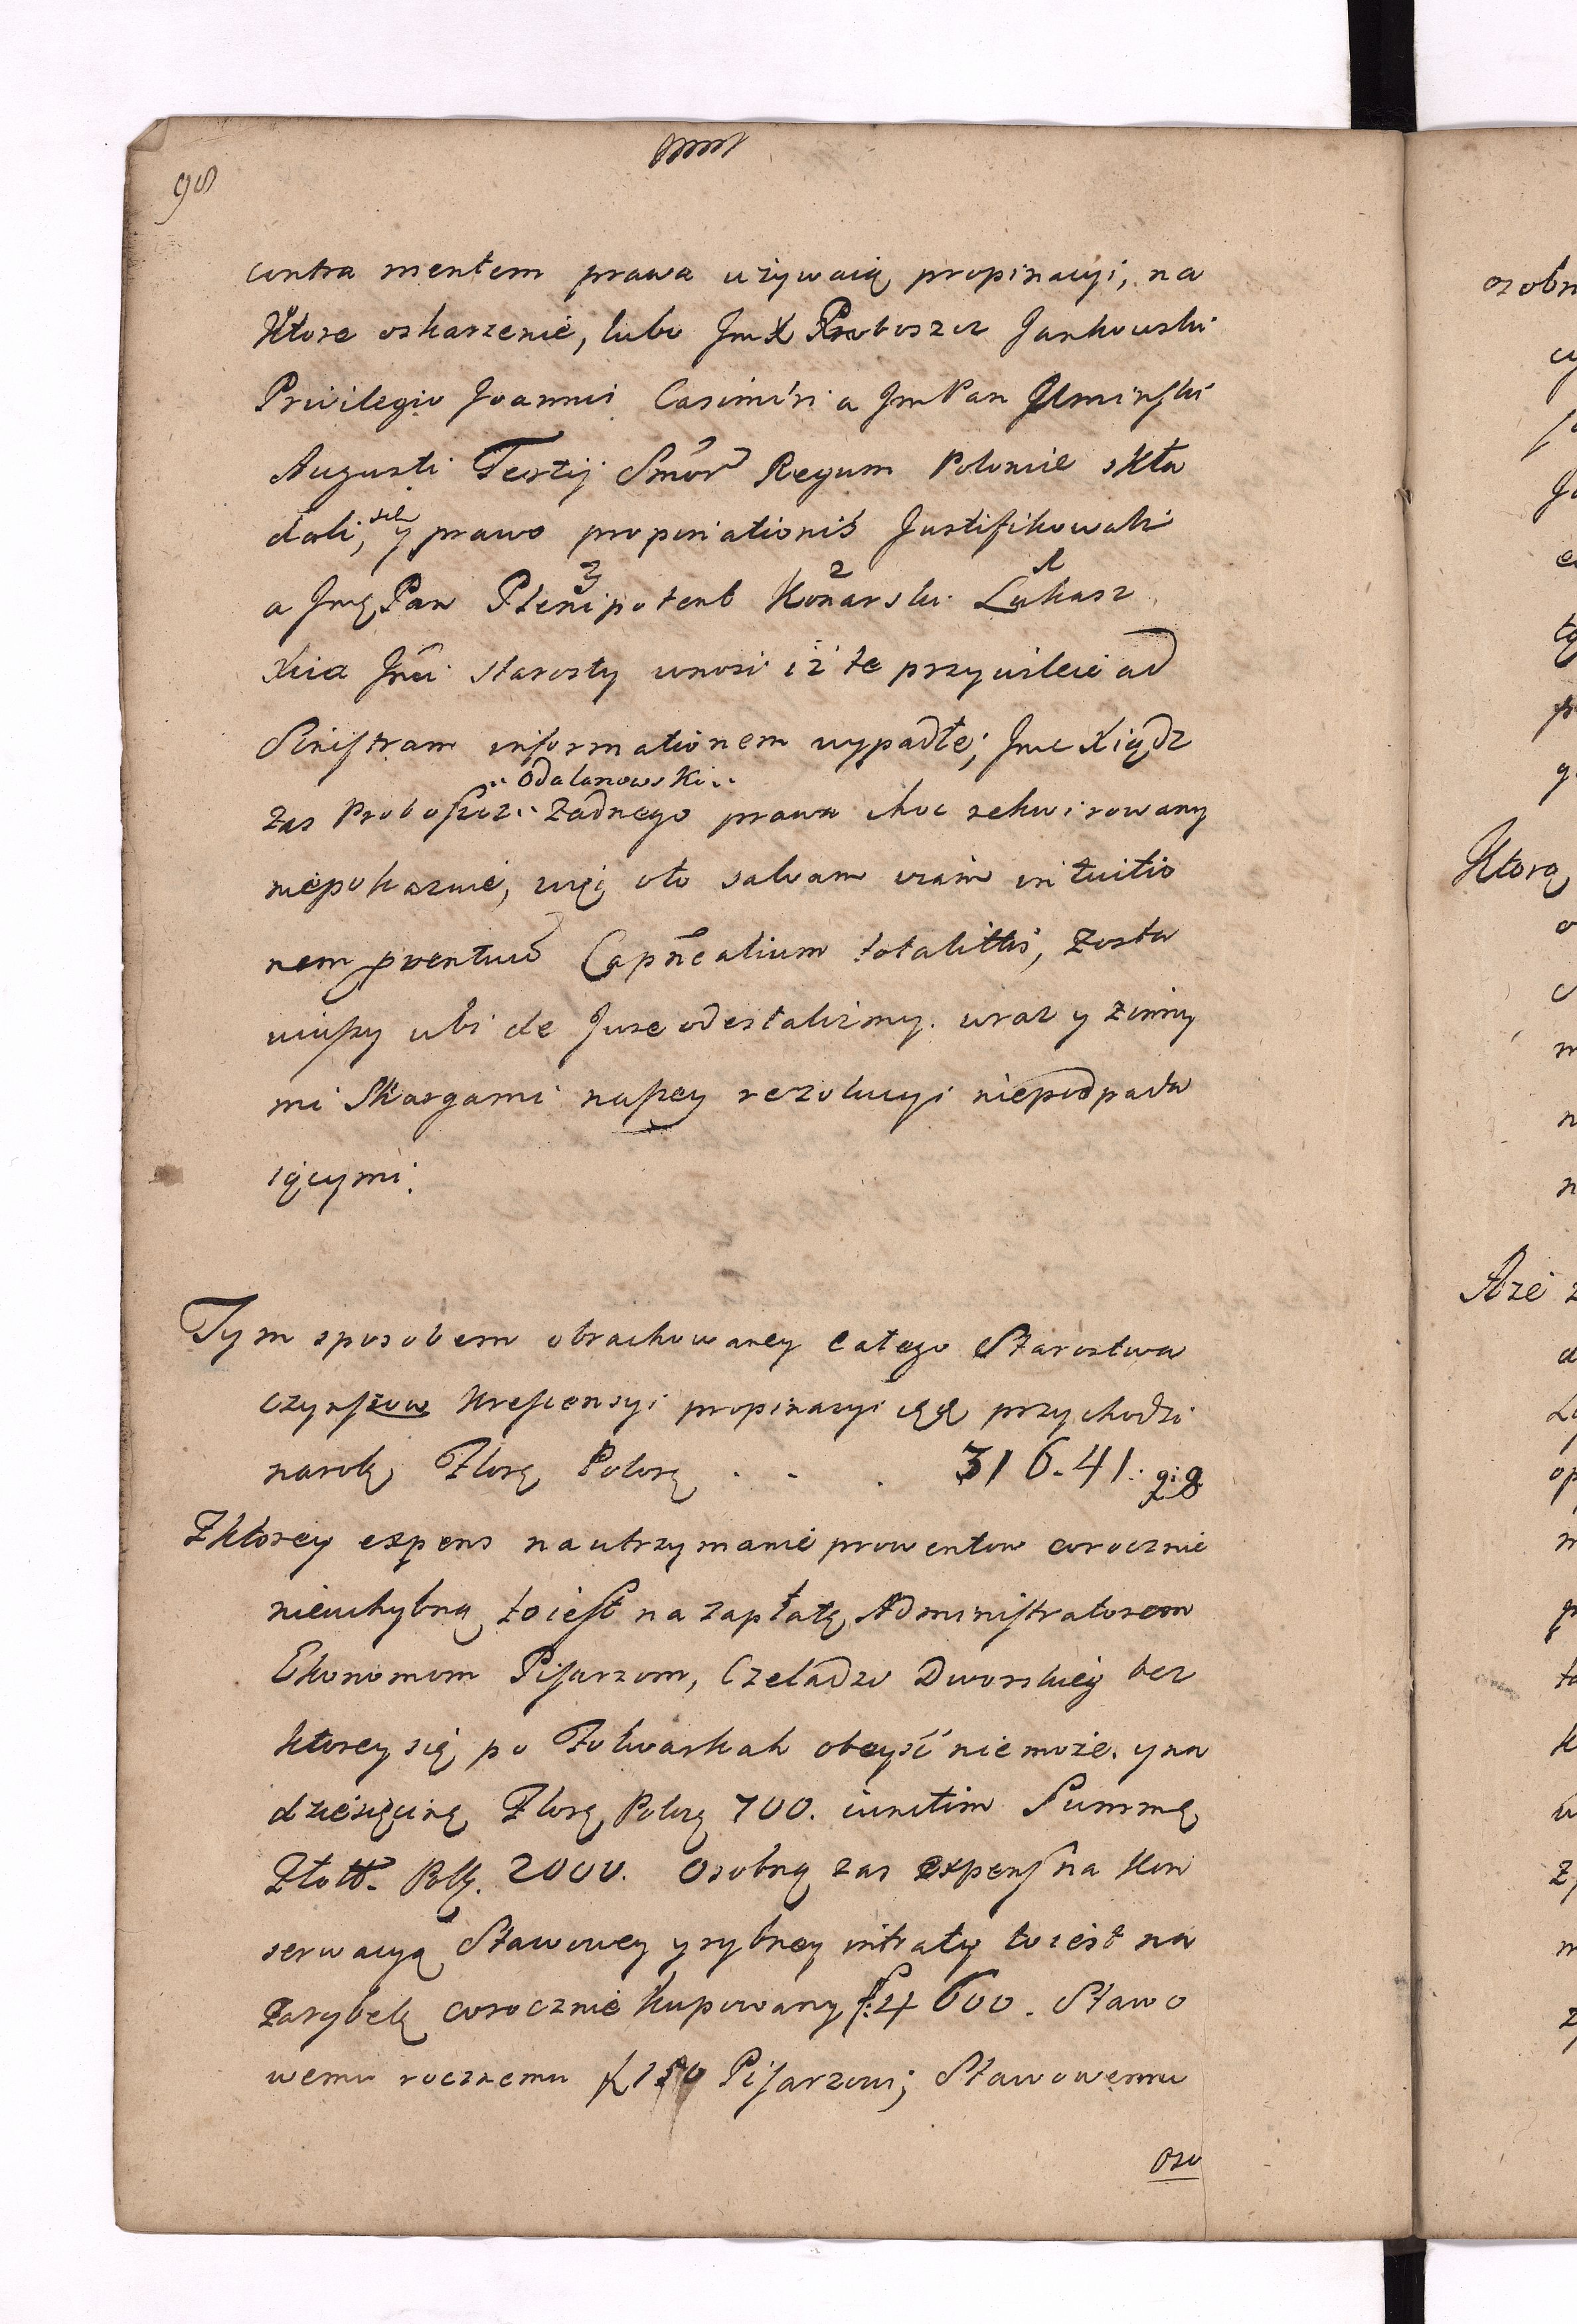 98
contra mentem prawa używaią propinacyi, na
Ktore oskarzenie, lubo JmX Proboszcz Jankowski
Privilegio Joannis Casimiri a JmPan Glminski
Augusti Tertij Smor Regum Polonie skła
dali, się y prawo propinationis Justifikowali
a Jmę Pan Plenipotent Konarski Łukasz
3 2 1
Xcia Jmci Starosty wnosi iż te przywileie ad
Sinistram informationem wypadłe; Jmc Xiądz
zas Proboszcz żadnego prawa choc rekwirowany
Odalanowski
niepokazuie, więc oto salvam viam intuitio
nem proventuũ Capñealium totalittis, zosta
wiwszy ubi de Jure odestalismy. wraz y zinny
mi Skargami naszey rezolucyi niepodpada
iącymi.
Tym sposobem obrachowaney całego Starostwa
czynszow Krescensyi propinacyi etc przychodzi
narok Złotych Polskich . . . 316.41: gi 8
Zktorey expens na utrzymanie prowentow corocznie
nieuchybną toiest na zapłatę Administratorem
Ekonomom Pisarzom, Czeladzi Dworskiey bez
ktorey się po Folwarkah obeysć niemoże. yna
dziesięcinę Złotych Polskich 700. iunctim Summę
Złott. Polh. 2000. Osobną zas expens na Kon
serwacyą Stawowey y rybney intraty toiest na
Zarybek corocznie kupowany f: 4600. Stawo
wemu rocznemu f 150 Pisarzowi; Stawowemu
oso
osobn
Ktorą
Aże